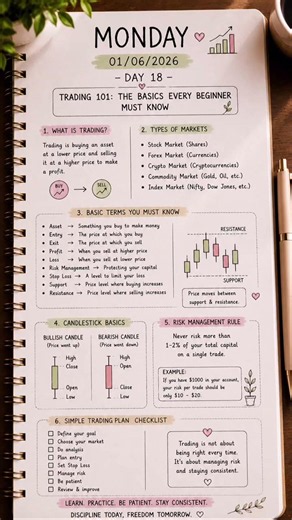 MONDAY
01/06/2026
- DAY 18 -
TRADING 101: THE BASICS EVERY BEGINNER
MUST KNOW
1. WHAT IS TRADING?
Trading is buying an asset
at a lower price and selling
it at a higher price to make
a profit.
BUY → SELL
2. TYPES OF MARKETS
• Stock Market (Shares)
• Forex Market (Currencies)
• Crypto Market (Cryptocurrencies)
• Commodity Market (Gold, Oil, etc.)
• Index Market (Nifty, Dow Jones, etc.)
3. BASIC TERMS YOU MUST KNOW
• Asset → Something you buy to make money
• Entry → The price at which you buy
• Exit → The price at which you sell
• Profit → When you sell at higher price
• Loss → When you sell at lower price
• Risk Management → Protecting your capital
• Stop Loss → A level to limit your loss
• Support → Price level where buying increases
• Resistance → Price level where selling increases
RESISTANCE
SUPPORT
Price moves between
support & resistance.
4. CANDLESTICK BASICS
BULLISH CANDLE
(Price went up)
High
Close
Open
Low
BEARISH CANDLE
(Price went down)
High
Open
Close
Low
5. RISK MANAGEMENT RULE
Never risk more than
1-2% of your total capital
on a single trade.
EXAMPLE:
If you have $1000 in your account,
your risk per trade should be
only $10 - $20.
6. SIMPLE TRADING PLAN CHECKLIST
Define your goal
Choose your market
Do analysis
Plan entry
Set Stop Loss
Manage risk
Be patient
Review & improve
Trading is not about
being right every time.
It's about managing risk
and staying consistent.
LEARN. PRACTICE. BE PATIENT. STAY CONSISTENT.
DISCIPLINE TODAY, FREEDOM TOMORROW.